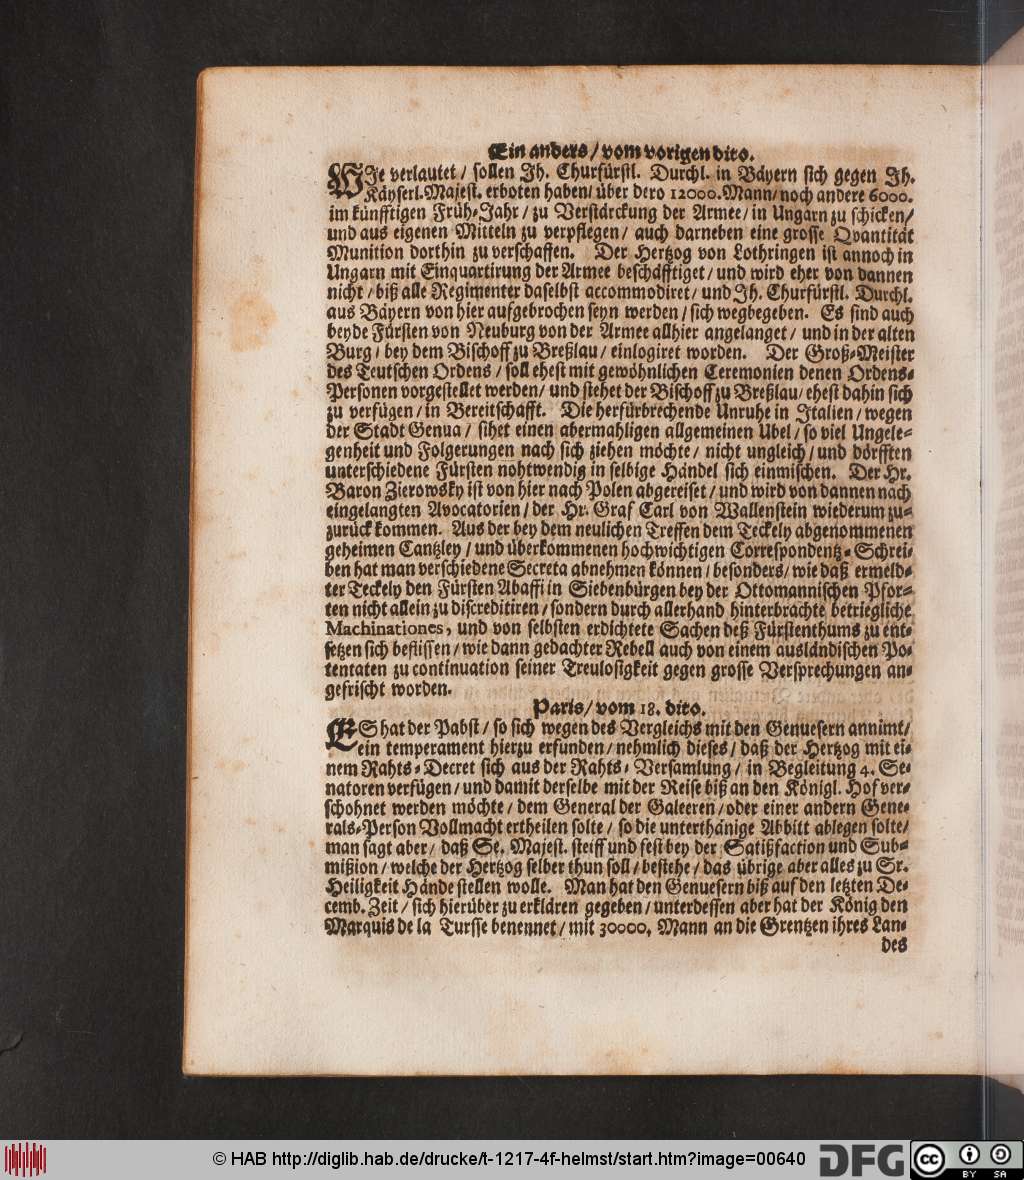 Ein anders / vom vorigen dito.
WJe verlautet / sollen Jh. Churfürstl. Durchl. in Bäyern sich gegen Jh.
Käyserl. Majest. erboten haben / über dero 12000. Mann / noch andere 6000.
im künfftigen Früh-Jahr / zu Verstärckung der Armee / in Ungarn zu schicken /
und aus eigenen Mitteln zu verpflegen / auch darneben eine grosse Qvantität
Munition dorthin zu verschaffen. Der Hertzog von Lothringen ist annoch in
Ungarn mit Einquartirung der Armee beschäfftiget / und wird eher von dannen
nicht / biß alle Regimenter daselbst accommodiret / und Jh. Churfürstl. Durchl.
aus Bäyern von hier aufgebrochen seyn werden / sich wegbegeben. Es sind auch
beyde Fürsten von Neuburg von der Armee allhier angelanget / und in der alten
Burg / bey dem Bischoff zu Breßlau / einlogiret worden. Der Groß-Meister
des Teutschen Ordens / soll ehest mit gewöhnlichen Ceremonien denen Ordens-
Personen vorgestellet werden / und stehet der Bischoff zu Breßlau / ehest dahin sich
zu verfügen / in Bereitschafft. Die herfürbrechende Unruhe in Jtalien / wegen
der Stadt Genua / sihet einen abermahligen allgemeinen Ubel / so viel Ungele-
genheit und Folgerungen nach sich ziehen möchte / nicht ungleich / und dörfften
unterschiedene Fürsten nohtwendig in selbige Händel sich einmischen. Der Hr.
Baron Zierowsky ist von hier nach Polen abgereiset / und wird von dannen nach
eingelangten Avocatorien / der Hr. Graf Carl von Wallenstein wiederum zu-
zurück kommen. Aus der bey dem neulichen Treffen dem Teckely abgenommenen
geheimen Cantzley / und überkommenen hochwichtigen Correspondentz-Schrei-
ben hat man verschiedene Secreta abnehmen können / besonders / wie daß ermeld-
ter Teckely den Fürsten Abaffi in Siebenbürgen bey der Ottomannischen Pfor-
ten nicht allein zu discreditiren / sondern durch allerhand hinterbrachte betriegliche
Machinationes, und von selbsten erdichtete Sachen deß Fürstenthums zu ent-
setzen sich beflissen / wie dann gedachter Rebell auch von einem ausländischen Po-
tentaten zu continuation seiner Treulosigkeit gegen grosse Versprechungen an-
gefrischt worden.
Paris / vom 18. dito.
ES hat der Pabst / so sich wegen des Vergleichs mit den Genuesern annimt /
ein temperament hierzu erfunden / nehmlich dieses / daß der Hertzog mit ei-
nem Rahts-Decret sich aus der Rahts-Versamlung / in Begleitung 4. Se-
natoren verfügen / und damit derselbe mit der Reise biß an den Königl. Hof ver-
schohnet werden möchte / dem General der Galeeren / oder einer andern Gene-
rals-Person Vollmacht ertheilen solte / so die unterthänige Abbitt ablegen solte /
man sagt aber / daß Se. Majest. steiff und fest bey der Satißfaction und Sub-
mißion / welche der Hertzog selber thun soll / bestehe / das übrige aber alles zu Sr.
Heiligkeit Hände stellen wolle. Man hat den Genuesern biß auf den letzten De-
cemb. Zeit / sich hierüber zu erklären gegeben / unterdessen aber hat der König den
Marquis de la Tursse benennet / mit 30000. Mann an die Grentzen ihres Lan-
des
© HAB http://diglib.hab.de/drucke/t-1217-4f-helmst/start.htm?image=00640
DFG
cc
BY SA